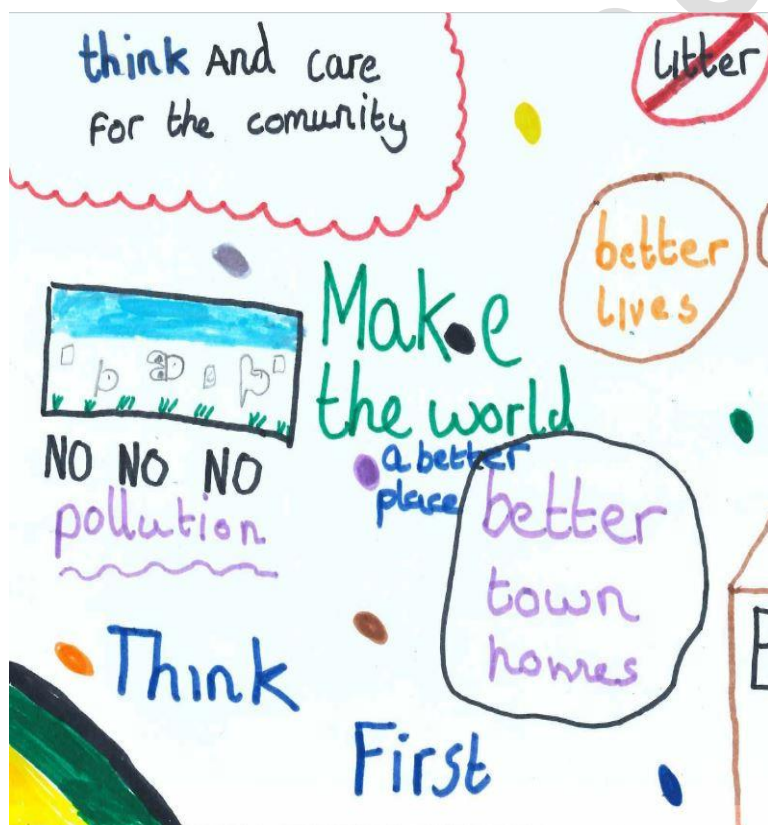 think And care
For the comunity
Litter
better
lives
Make
the world
a better
place
NO NO NO
pollution
better
town
homes
Think
First